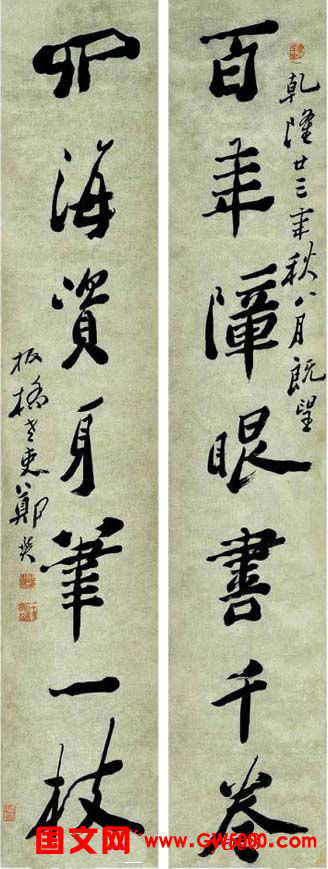 百年障眼書千卷
乾隆廿三年秋八月既望
四海資身筆一枝
板橋老鄭燮
国文网 www.GW5000.com